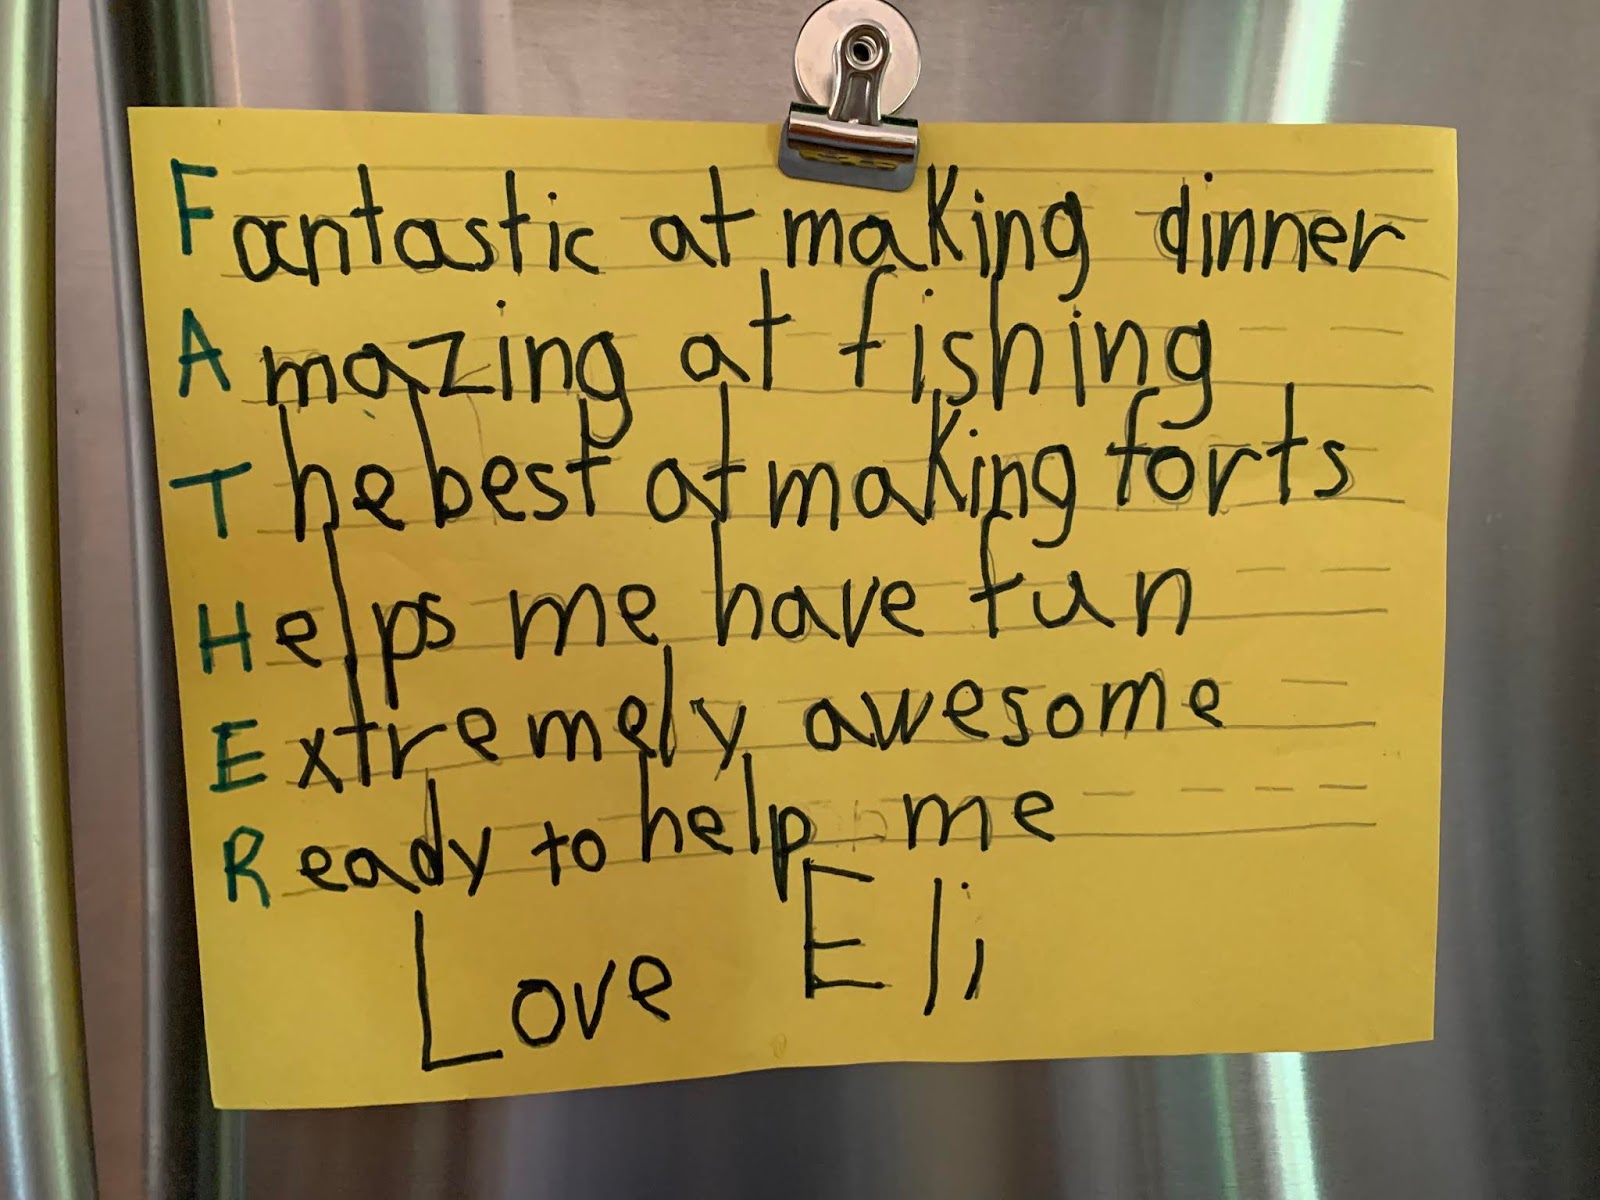 Fantastic at making dinner
Amazing at fishing
The best at making forts
Helps me have fun
Extremely awesome
Ready to help me
Love Eli